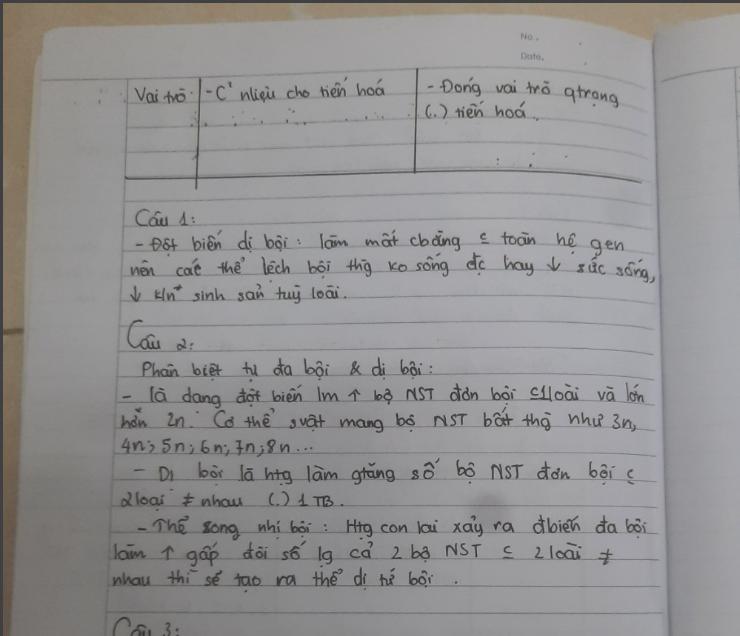 No.
Date.
Vai trò - C² nliệu cho tiến hoá - Đóng vai trò qtrọng
(.) tiến hoá.
Câu 1:
- Đột biến dị bội : làm mất cbằng c̲ toàn hệ gen
nên các thể lệch bội thg ko sống đc hay ↓ sức sống,
↓ k/n* sinh sản tuỳ loài.
Câu 2:
Phân biệt tự đa bội & dị bội :
- là dạng đột biến lm ↑ bộ NST đơn bội c̲ 1 loài và lớn
hơn 2n. Cơ thể svật mang bộ NST bất thg như 3n,
4n; 5n; 6n; 7n; 8n...
- Dị bội là htg làm gtăng số bộ NST đơn bội c̲
2 loại ≠ nhau (.) 1 TB.
- Thể song nhị bội : Htg con lai xảy ra đbiến đa bội
làm ↑ gấp đôi số lg cả 2 bộ NST c̲ 2 loài ≠
nhau thì sẽ tạo ra thể dị tứ bội .
Câu 3: